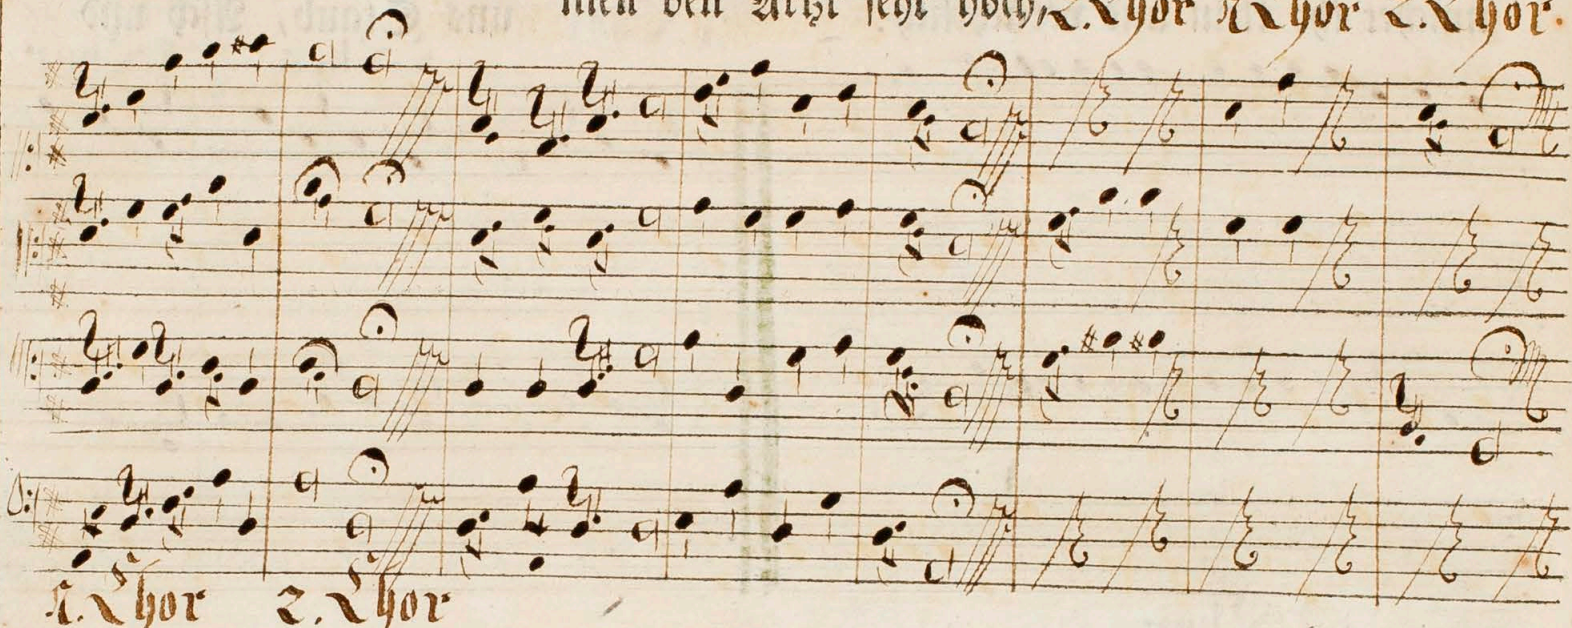 men den Arzt sehr hoch, 2. Chor 1. Chor 2. Chor.
1. Chor 2. Chor